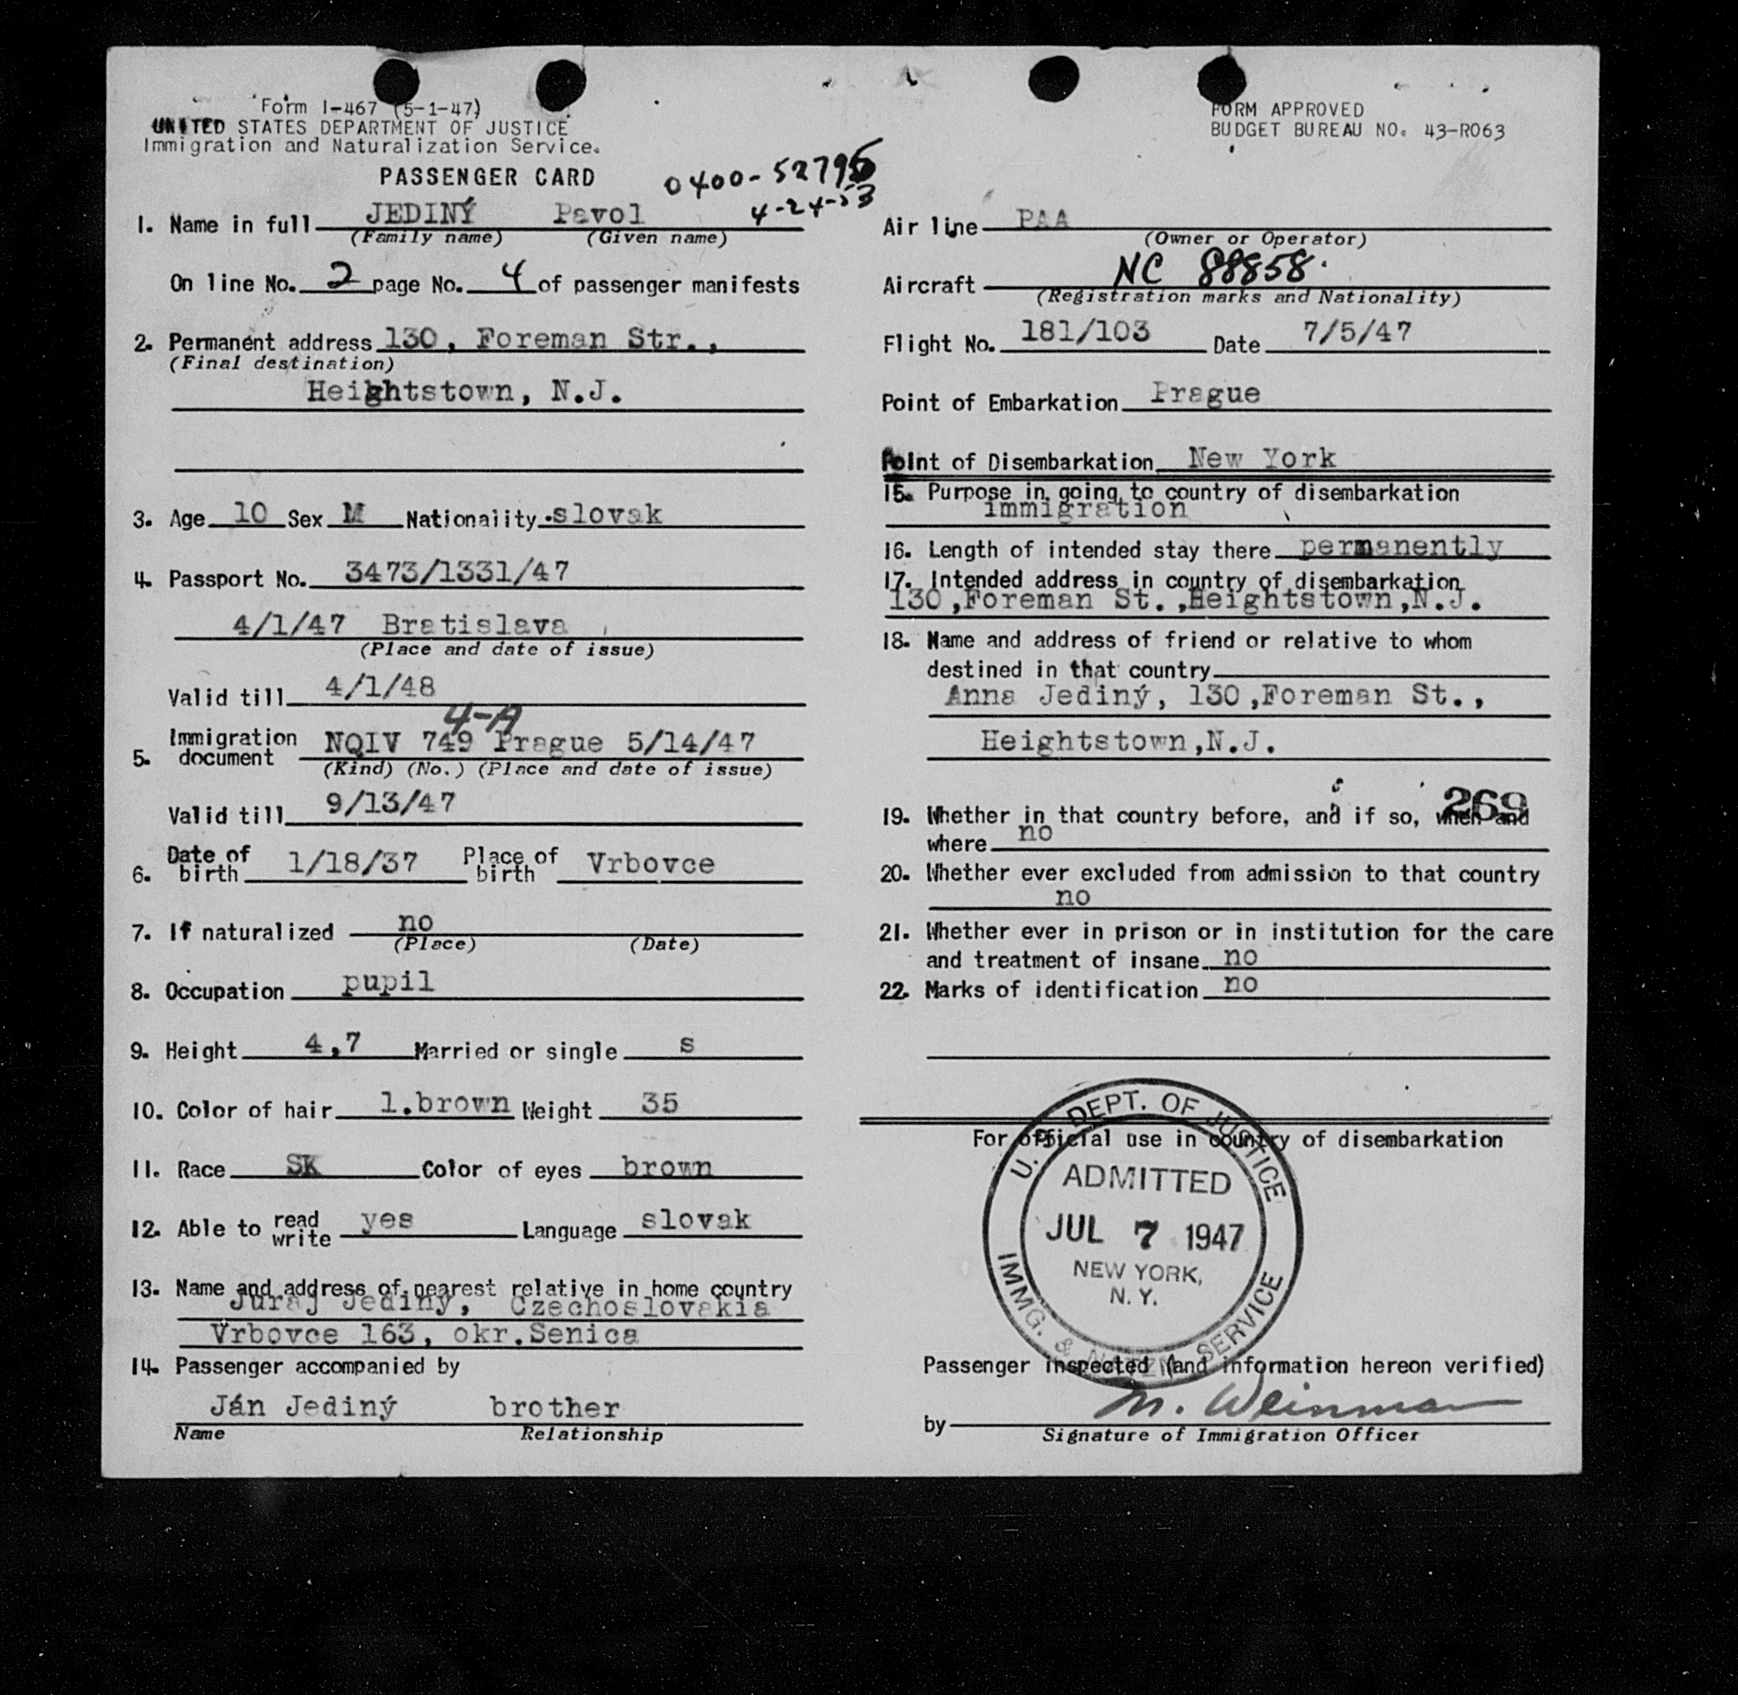 Form I-467 (5-1-47)
UNITED STATES DEPARTMENT OF JUSTICE
Immigration and Naturalization Service.
PASSENGER CARD
0400-52795
4-24-53
1. Name in full JEDINÝ Pavol
(Family name) (Given name)
On line No. 2 page No. 4 of passenger manifests
2. Permanent address 130, Foreman Str.,
(Final destination)
Heightstown, N.J.
3. Age 10 Sex M Nationality slovak
4. Passport No. 3473/1331/47
4/1/47 Bratislava
(Place and date of issue)
Valid till 4/1/48
4-A
5. Immigration document NQIV 749 Prague 5/14/47
(Kind) (No.) (Place and date of issue)
Valid till 9/13/47
6. Date of birth 1/18/37 Place of birth Vrbovce
7. If naturalized no
(Place) (Date)
8. Occupation pupil
9. Height 4,7 Married or single s
10. Color of hair l.brown Weight 35
11. Race SK Color of eyes brown
12. Able to read write yes Language slovak
13. Name and address of nearest relative in home country
Juraj Jediný, Czechoslovakia
Vrbovce 163, okr.Senica
14. Passenger accompanied by
Ján Jediný brother
Name Relationship
FORM APPROVED
BUDGET BUREAU NO. 43-R063
Air line PAA
(Owner or Operator)
Aircraft NC 88858
(Registration marks and Nationality)
Flight No. 181/103 Date 7/5/47
Point of Embarkation Prague
Point of Disembarkation New York
15. Purpose in going to country of disembarkation
immigration
16. Length of intended stay there permanently
17. Intended address in country of disembarkation
130,Foreman St.,Heightstown,N.J.
18. Name and address of friend or relative to whom
destined in that country
Anna Jediný, 130,Foreman St.,
Heightstown,N.J.
269
19. Whether in that country before, and if so, when and
where no
20. Whether ever excluded from admission to that country
no
21. Whether ever in prison or in institution for the care
and treatment of insane no
22. Marks of identification no
For official use in country of disembarkation
U. S. DEPT. OF JUSTICE
ADMITTED
JUL 7 1947
NEW YORK,
N. Y.
IMMG. & NATZN. SERVICE
Passenger inspected (and information hereon verified)
by M. Weinman
Signature of Immigration Officer